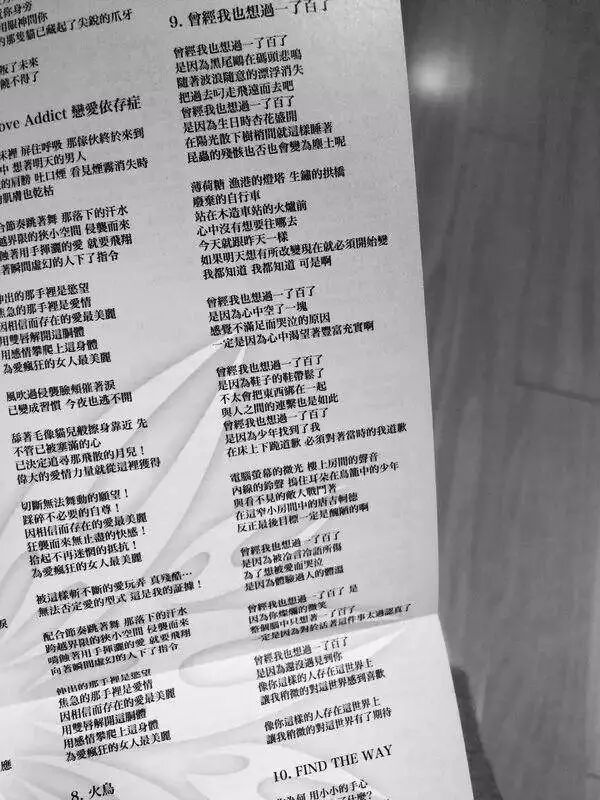 你身旁
用眼神問你
的那隻貓已藏起了尖銳的爪牙
叛了未來
饒不得了
ove Addict 戀愛依存症
床裡 屏住呼吸 那傢伙終於來到
中 想著明天的男人
的肩膀 吐口煙 看見煙霧消失時
的肌膚也乾枯
合節奏跳著舞 那落下的汗水
越界限的狹小空間 侵襲而來
蝕著用手揮灑的愛 就要飛翔
著瞬間虛幻的人下了指令
伸出的那手裡是慾望
焦急的那手裡是愛情
因相信而存在的愛最美麗
用雙唇解開這胴體
用感情攀爬上這身體
為愛瘋狂的女人最美麗
風吹過侵襲臉頰靠著淚
已變成習慣 今夜也逃不開
舔著毛像貓兒般擦身靠近 先
不管已被塞滿的心
已決定追尋那飛散的月兒！
偉大的愛情力量就從這裡獲得
切斷無法舞動的願望！
踩碎不必要的自尊！
因相信而存在的愛最美麗
狂襲而來無止盡的快感！
拾起不再迷惘的抵抗！
為愛瘋狂的女人最美麗
被這樣斬不斷的愛玩弄 真殘酷…
無法否定愛的型式 這是我的証據！
配合節奏跳著舞 那落下的汗水
跨越界限的狹小空間 侵襲而來
啃蝕著用手揮灑的愛 就要飛翔
向著瞬間虛幻的人下了指令
伸出的那手裡是慾望
焦急的那手裡是愛情
因相信而存在的愛最美麗
用雙唇解開這胴體
用感情攀爬上這身體
為愛瘋狂的女人最美麗
8. 火鳥
9. 曾經我也想過一了百了
曾經我也想過一了百了
是因為黑尾鷗在碼頭悲鳴
隨著波浪隨意的漂浮消失
把過去叼走飛遠而去吧
曾經我也想過一了百了
是因為生日時杏花盛開
在陽光散下樹梢間就這樣睡著
昆蟲的殘骸也否也會變為塵土呢
薄荷糖 漁港的燈塔 生鏽的拱橋
廢棄的自行車
站在木造車站的火爐前
心中沒有想要往哪去
今天就跟昨天一樣
如果明天想有所改變現在就必須開始變
我都知道 我都知道 可是啊
曾經我也想過一了百了
是因為心中空了一塊
感覺不滿足而哭泣的原因
一定是因為心中渴望著豐富充實啊
曾經我也想過一了百了
是因為鞋子的鞋帶鬆了
不太會把東西綁在一起
與人之間的連繫也是如此
曾經我也想過一了百了
是因為少年找到了我
在床上下跪道歉 必須對著當時的我道歉
電腦螢幕的微光 樓上房間的聲音
內線的鈴聲 摀住耳朵在鳥籠中的少年
與看不見的敵人戰鬥著
在這窄小房間中的唐吉軻德
反正最後目標一定是醜陋的啊
曾經我也想過一了百了
是因為被冷言冷語所傷
為了想被愛而哭泣
是因為體驗過人的體溫
曾經我也想過一了百了 是
因為你燦爛的微笑
整個腦中只想著一了百了
一定是因為對於活著這件事太過認真了
曾經我也想過一了百了
是因為還沒遇見到你
像你這樣的人存在這世界上
讓我稍微的對這世界感到喜歡
像你這樣的人存在這世界上
讓我稍微的對這世界有了期待
10. FIND THE WAY
為何 用小小的手心